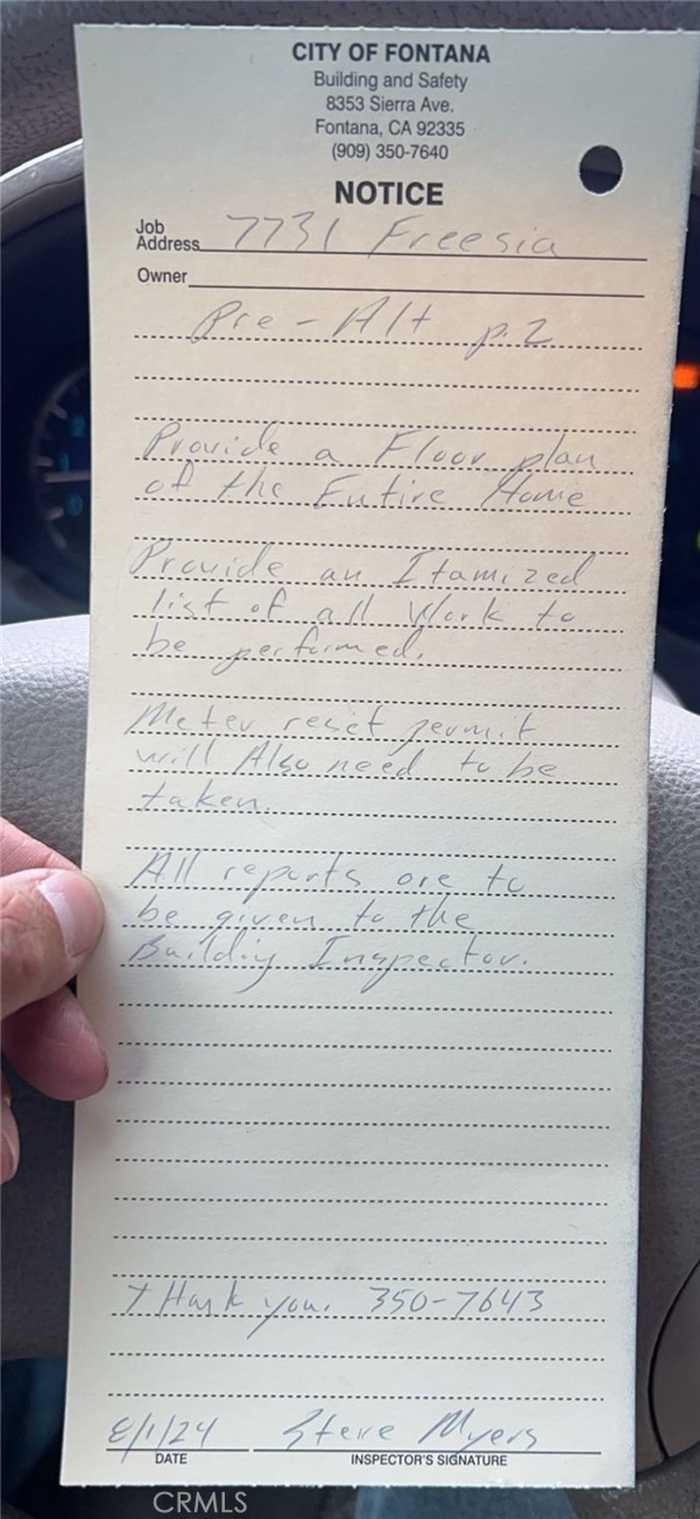 CITY OF FONTANA
Building and Safety
8353 Sierra Ave.
Fontana, CA 92335
(909) 350-7640
NOTICE
Job
Address 7731 Freesia
Owner
Pre-Alt p.2
Provide a Floor plan
of the Entire Home
Provide an Itamized
list of all Work to
be performed.
Meter reset permit
will Also need to be
taken.
All reports are to
be given to the
Building Inspector.
Thank you. 350-7643
8/1/24 Steve Myers
DATE INSPECTOR'S SIGNATURE
CRMLS